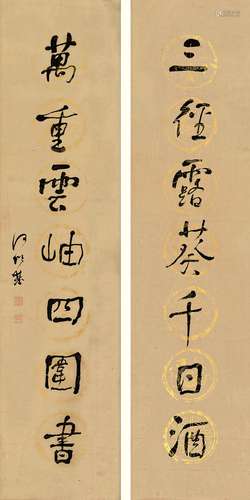 三徑露葵千日酒
萬重雲岫四圍書
何紹基